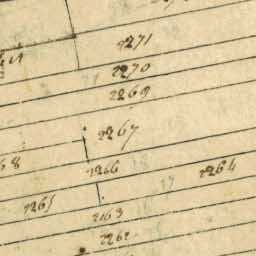 2271
2270
2269
2267
68
2266
2264
2265
2263
2262